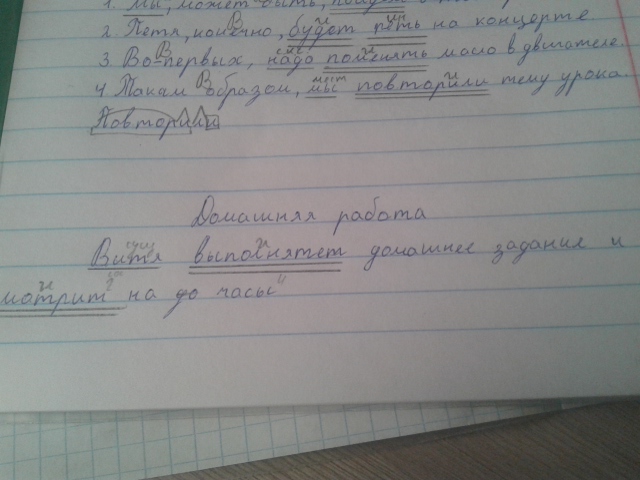 1. Мы, может быть, пойдем в
2. Петя, конечно, будет петь на концерте.
3. Во-первых, надо поменять масло в двигателе.
4. Таким образом, мы повторили тему урока.
Повторили
Домашняя работа
Витя выполнятет домашнее задание и
мотрит на до часы